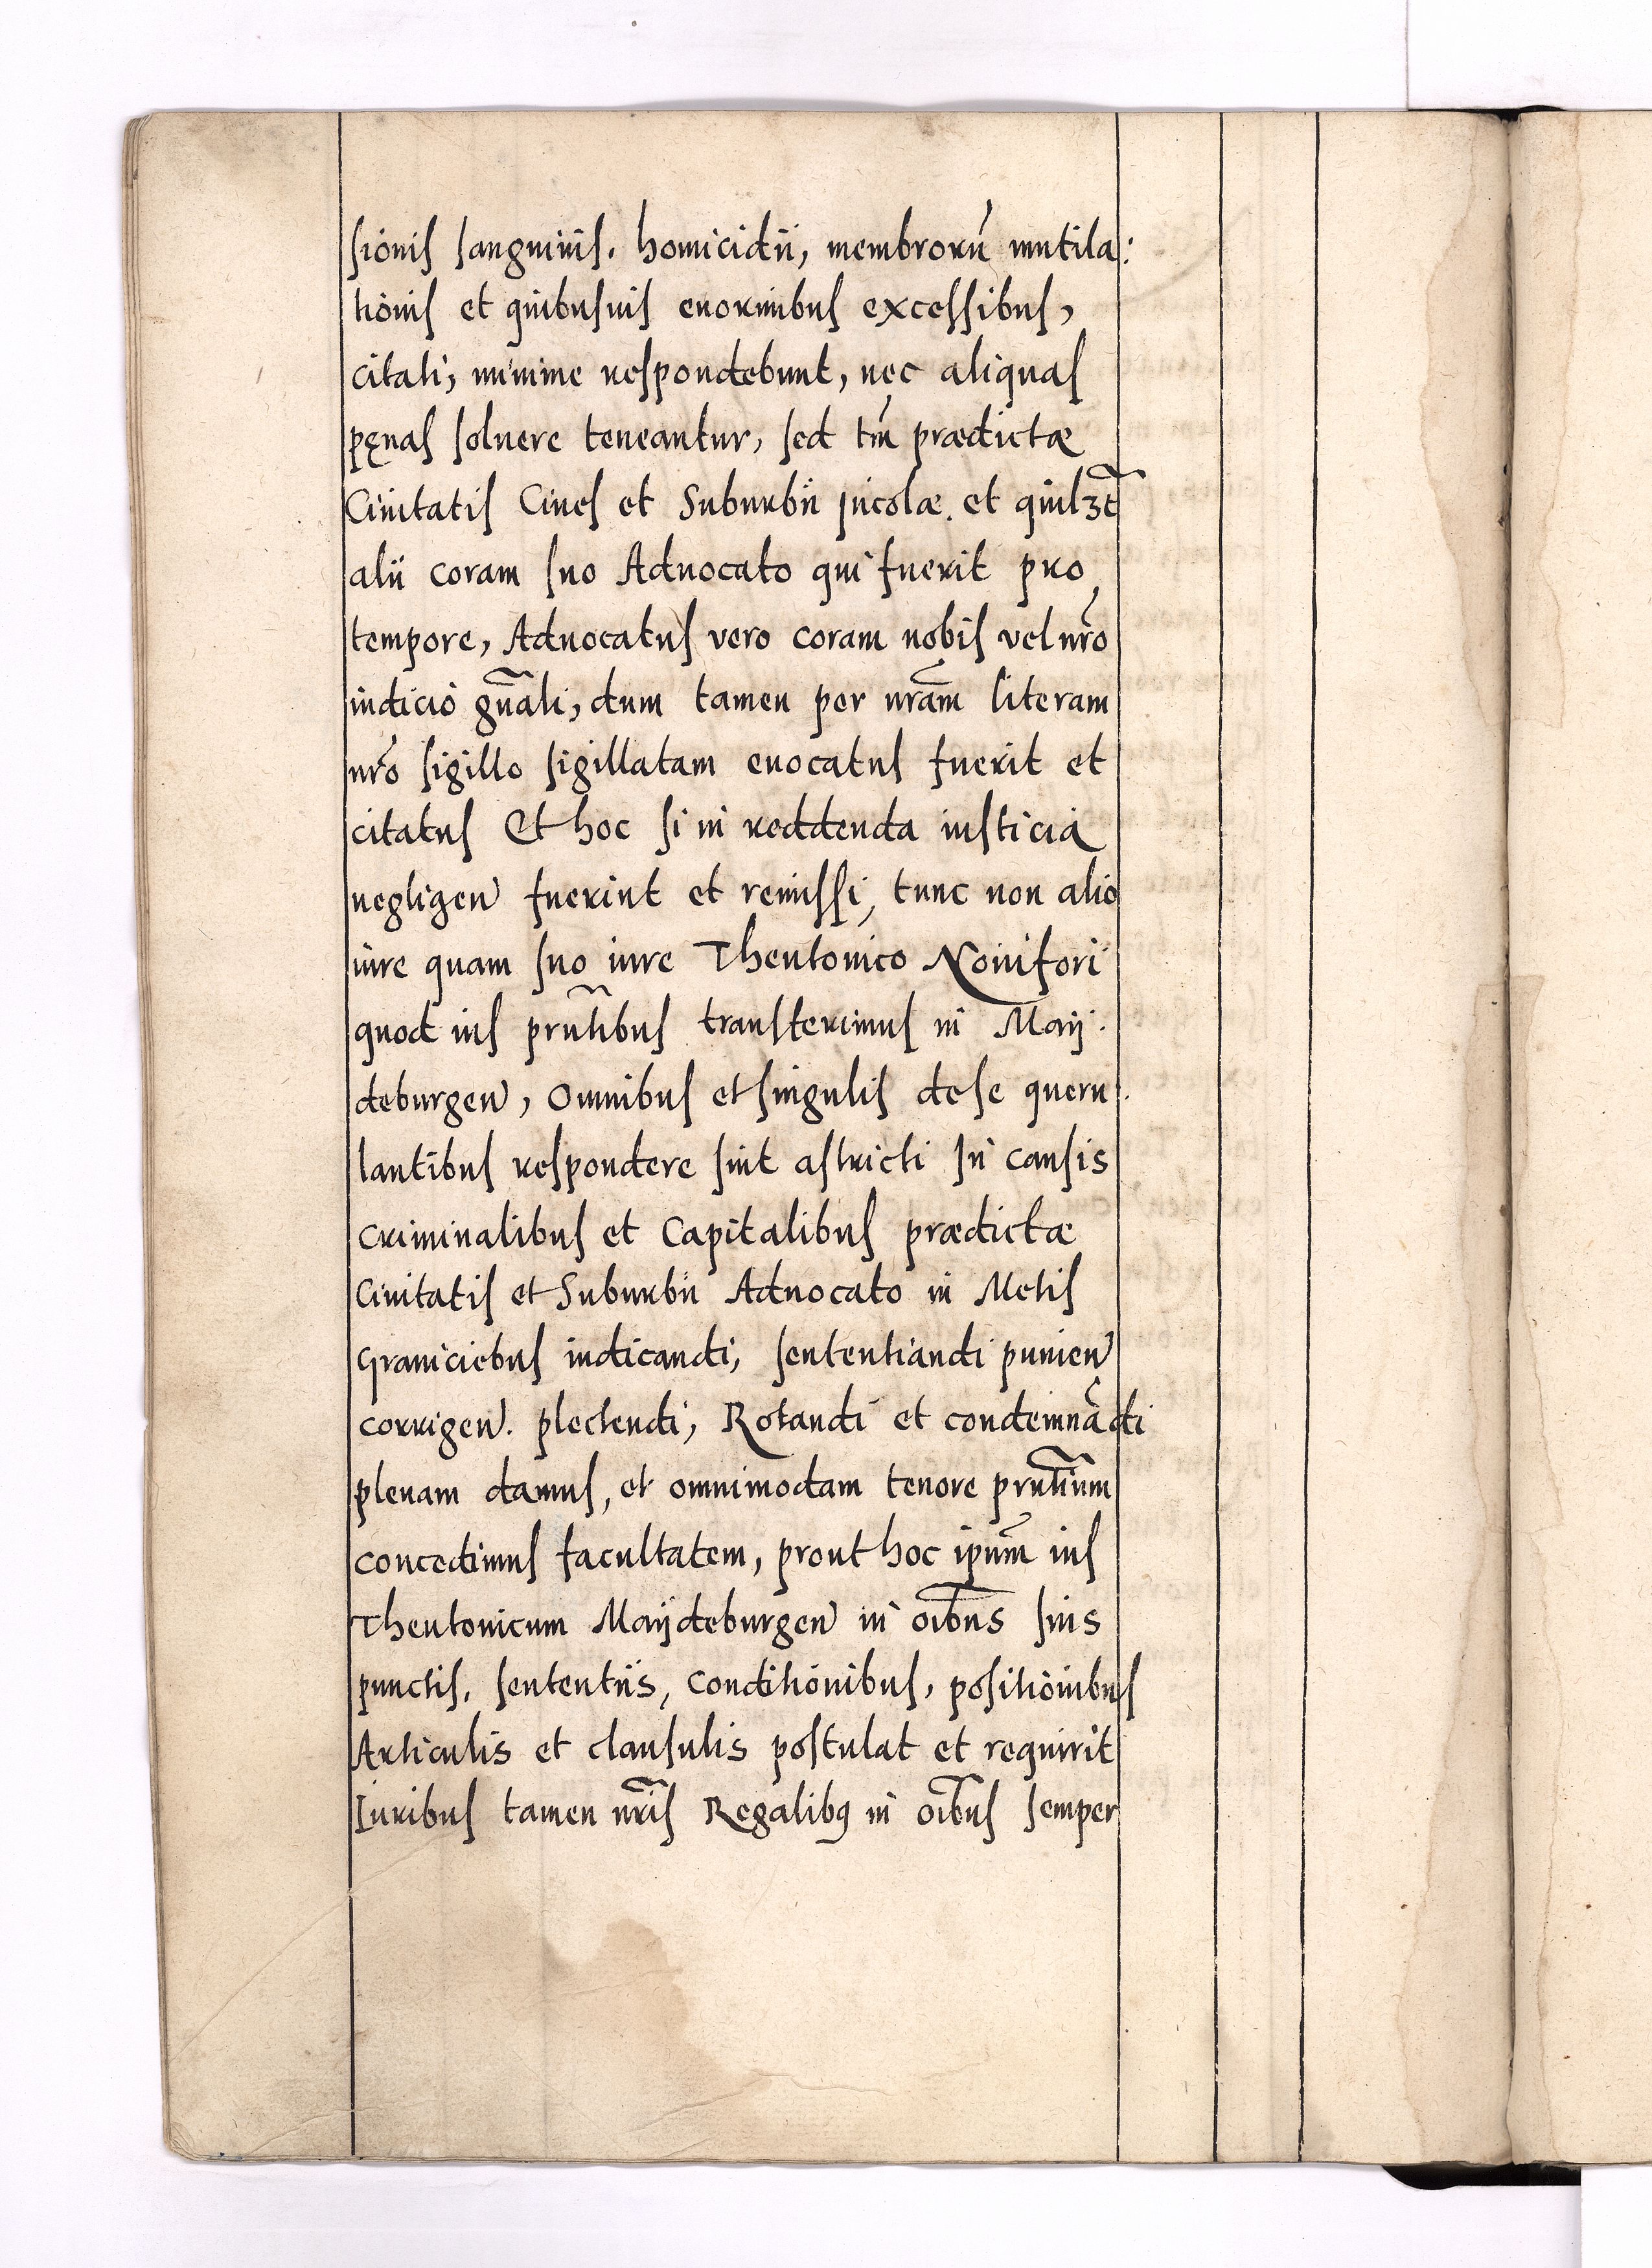 sionis sanguinis. homicidii, membrorū mutila:
tionis et quibusuis enormibus excessibus,
citati, minime respondebunt, nec aliquas
pęnas soluere teneantur, sed tm̄ prædictæ
Ciuitatis Ciues et Suburbii Incolæ. et quilꝫt
alii coram suo Aduocato qui fuerit pro
tempore, Aduocatus vero coram nobis vel nr̄o
iudicio gn̄ali, dum tamen per nr̄am literam
nr̄o sigillo sigillatam euocatus fuerit et
citatus Et hoc si in reddenda iusticia
negligen fuerint et remissi, tunc non alio
iure quam suo iure Theutonico Nouifori
quod ius prn̄tibus transferimus in Maij:
deburgen, Omnibus et singulis de se queru:
lantibus respondere sint astricti In causis
Criminalibus et Capitalibus prædictæ
Ciuitatis et Suburbii Aduocato in Metis
Graniciebus iudicandi, sententiandi punien
corrigen. plectendi, Rotandi et condemnādi
plenam damus, et omnimodam tenore prn̄tium
concedimus facultatem, prout hoc ipm̄ ius
Theutonicum Maijdeburgen in oībus suis
punctis, sententiis, Conditionibus, positionibus
Articulis et clausulis postulat et requirit
Iuribus tamen nr̄is Regalibꝯ in oībus semper